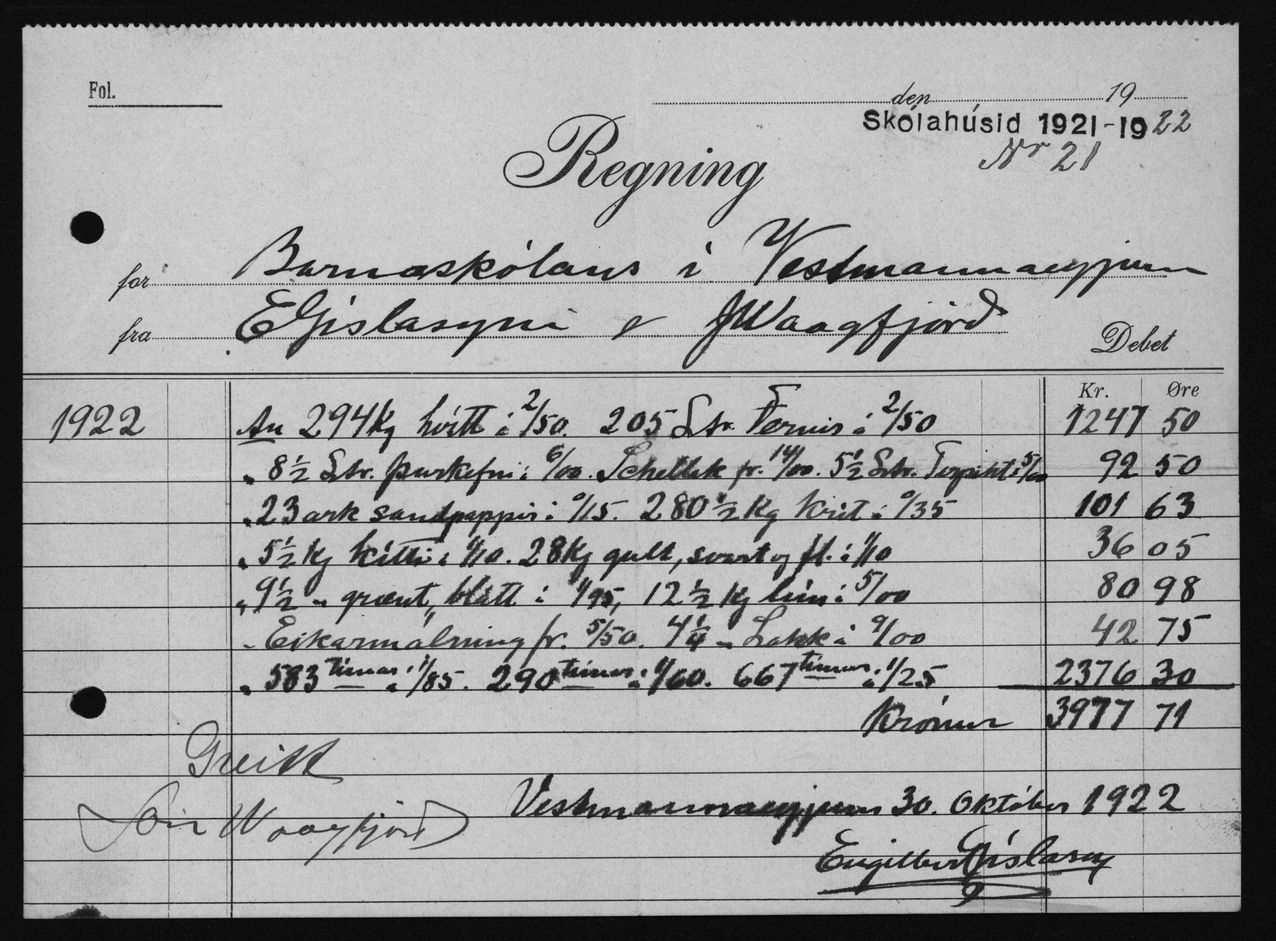 Fol.
den 19
Skólahúsid 1921-1922
Nr 21
Regning
for Barnaskólans í Vestmannaeyjum
fra EGíslasyni & JWaagfjörd
Debet
Kr. Øre
1922 An 294 kg hvítt á 2/50. 205 Ltr. Fernis á 2/50 1247 50
„ 8 1/2 Ltr. þurkefni á 6/00. Schellak fr. 14/00. 5 1/2 Ltr. Terpint á 5/00 92 50
„ 23 ark sandpappír á 0/15. 280 1/2 kg krít á 0/35 101 63
„ 5 1/2 kg kítti á 1/10. 28 kg gult, svart og fl. á 1/10 36 05
„ 9 1/2 „ grænt, blátt á 1/95, 12 1/2 kg lím á 5/00 80 98
„ Eikarmálning fr. 5/50. 4 1/4 „ Lakk á 9/00 42 75
„ 583 tímar á 1/85. 290 tímar á 1/60. 667 tímar á 1/25 2376 30
Krónur 3977 71
Greitt
Vestmannaeyjum 30. Október 1922
Jón Waagfjörd
Engilbert Gíslason